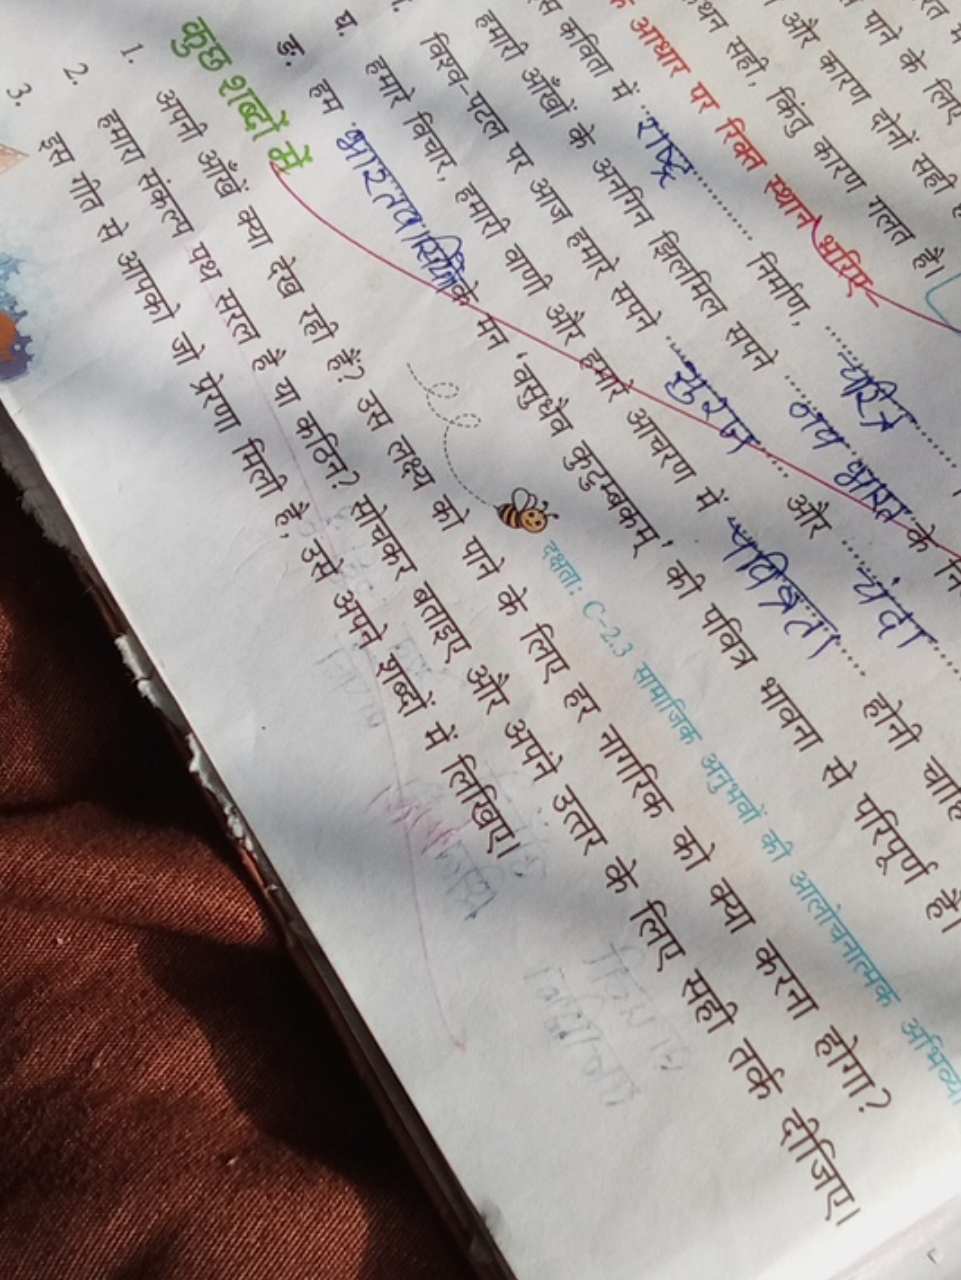 कथन सही, किंतु कारण गलत है।
और कारण दोनों सही
पाने के लिए
आधार पर रिक्त स्थान भरिए–
कविता में ...राष्ट्र......... निर्माण, ...चरित्र.........
हमारी आँखों के अनगिन झिलमिल सपने ...नव भारत... के
विश्व-पटल पर आज हमारे सपने ...सुरज... और ...चंदा...
घ. हमारे विचार, हमारी वाणी और हमारे आचरण में ...पवित्रता... होनी
ङ. हम भारतवासियों के मन 'वसुधैव कुटुम्बकम्' की पवित्र भावना से परिपूर्ण हैं।
कुछ शब्दों में
दक्षता: C-2.3 सामाजिक अनुभवों की आलोचनात्मक
1. अपनी आँखें क्या देख रही हैं? उस लक्ष्य को पाने के लिए हर नागरिक को क्या करना होगा?
2. हमारा संकल्प पथ सरल है या कठिन? सोचकर बताइए और अपने उत्तर के लिए सही तर्क दीजिए।
3. इस गीत से आपको जो प्रेरणा मिली है, उसे अपने शब्दों में लिखिए।